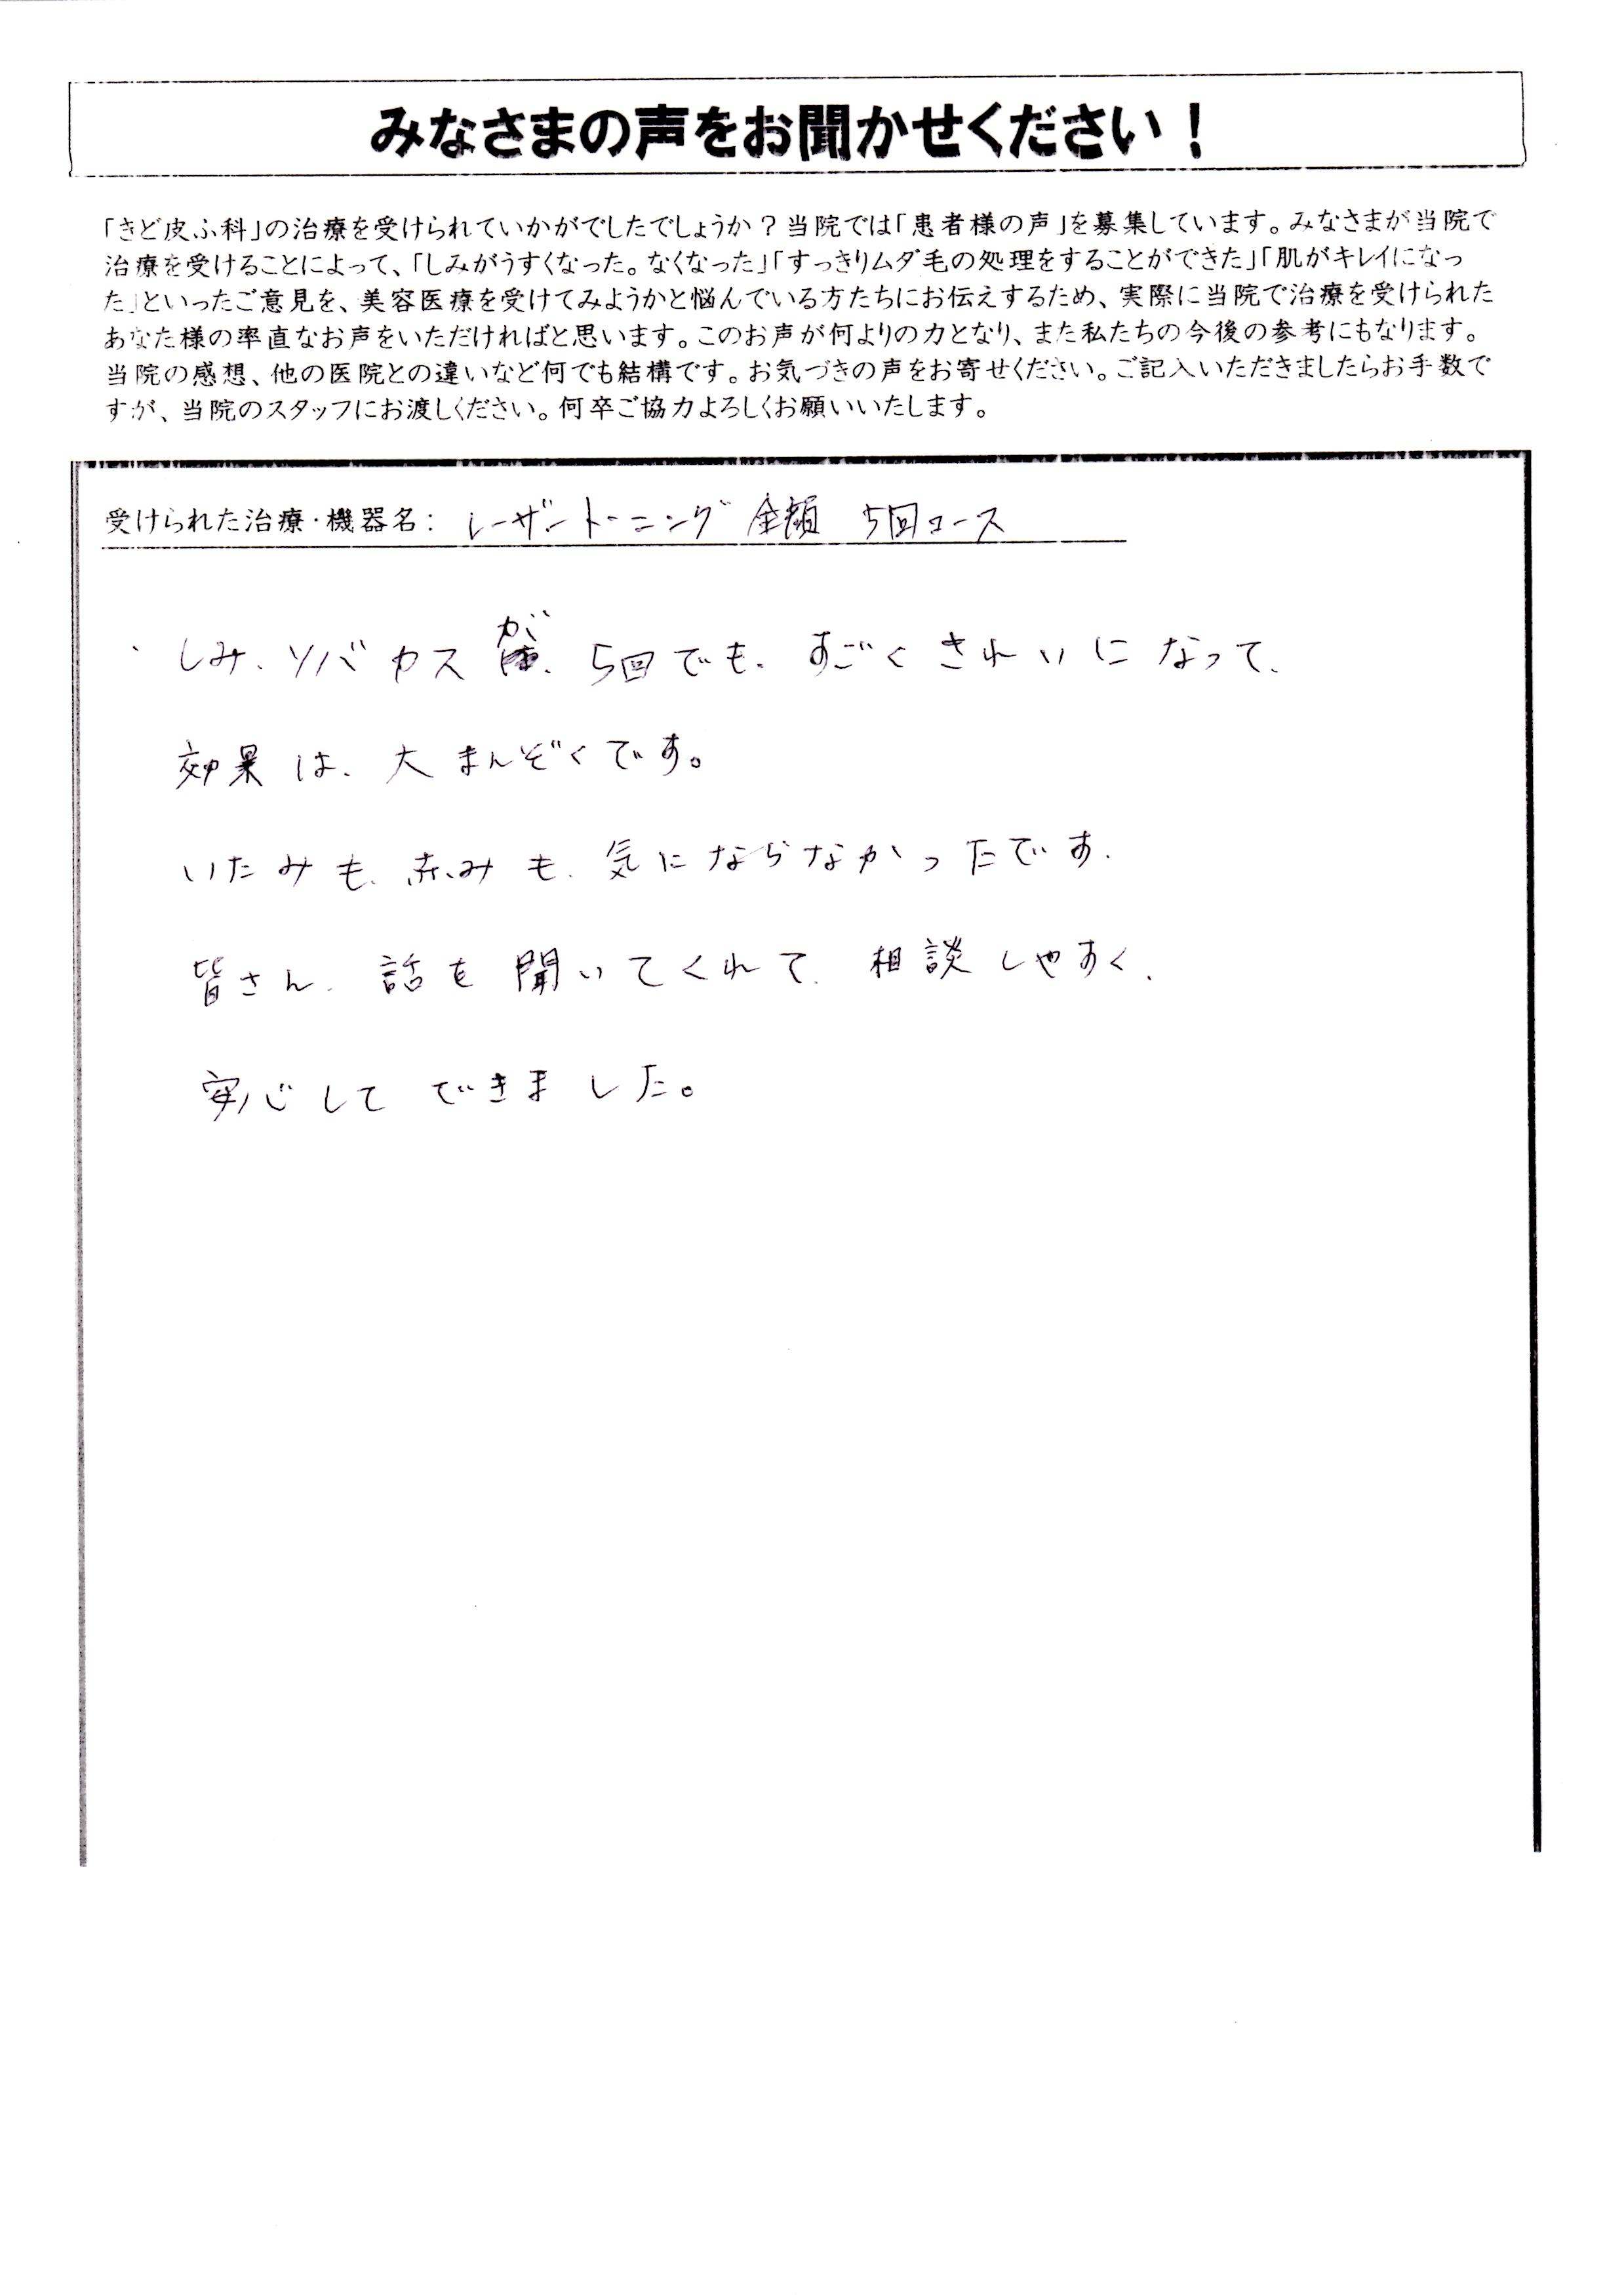 みなさまの声をお聞かせください！
「きど皮ふ科」の治療を受けられていかがでしたでしょうか？当院では「患者様の声」を募集しています。みなさまが当院で
治療を受けることによって、「しみがうすくなった。なくなった」「すっきりムダ毛の処理をすることができた」「肌がキレイになっ
た」といったご意見を、美容医療を受けてみようかと悩んでいる方たちにお伝えするため、実際に当院で治療を受けられた
あなた様の率直なお声をいただければと思います。このお声が何よりの力となり、また私たちの今後の参考にもなります。
当院の感想、他の医院との違いなど何でも結構です。お気づきの声をお寄せください。ご記入いただきましたらお手数で
すが、当院のスタッフにお渡しください。何卒ご協力よろしくお願いいたします。
受けられた治療・機器名： レーザートーニング 全顔 5回コース
・しみ、ソバカスが、5回でも、すごくきれいになって、
効果は、大まんぞくです。
いたみも、赤みも、気にならなかったです。
皆さん、話を聞いてくれて、相談しやすく、
安心してできました。